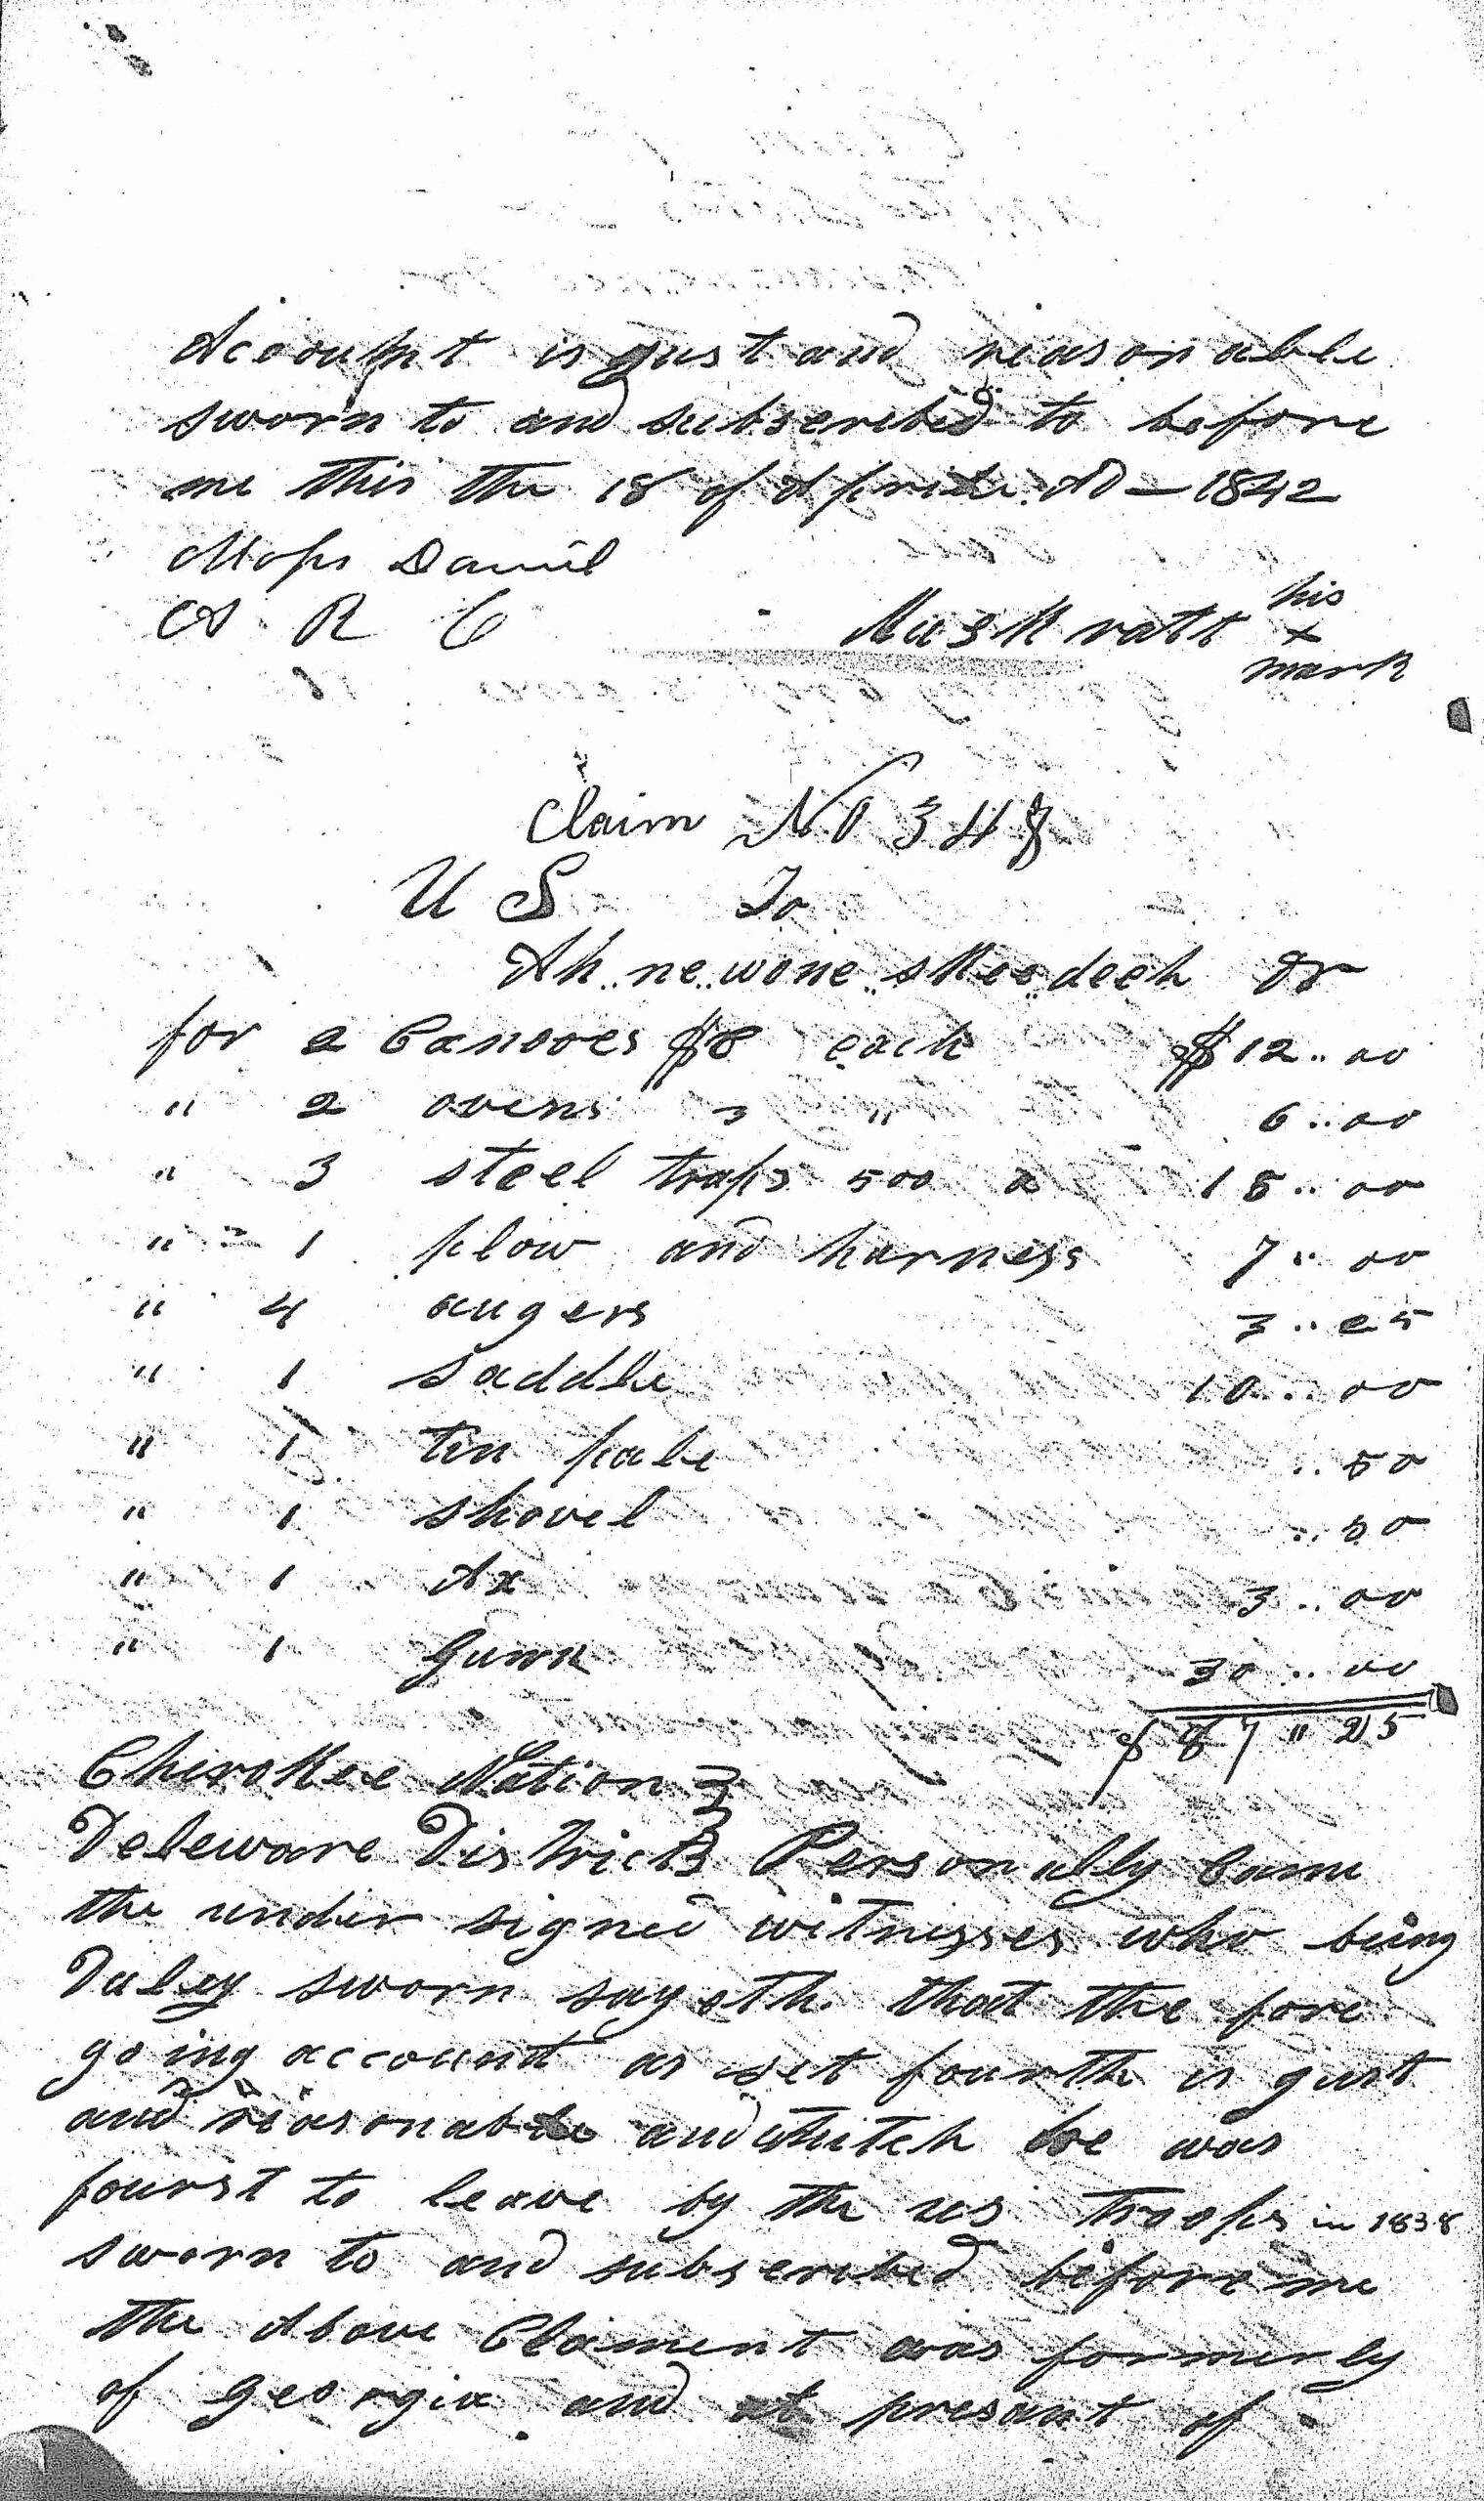 Account is gust and reasonable
sworn to and subscribed to before
me this the 18 of April AD — 1842
Moses Daniel
A R C Muskratt his x mark
Claim No 348
U S To
Ah..ne..wone..skee deeh Dr
for 2 Canooes $6 each $12..00
" 2 ovens 3 " 6..00
" 3 steel traps 500 a 15..00
" 1 plow and harness 7..00
" 4 augers 3..25
" 1 saddle 10..00
" 1 tin pale ..50
" 1 shovel ..50
" 1 Ax 3..00
" 1 Gunn 30..00
$87"25
Cherokee Nation
Deleware District Personally Came
the under signed witnesses who being
Duley sworn sayeth that the fore
going account as set fourth is gust
and reasonable and whitch he was
fourst to leave by the us troops in 1838
sworn to and subscribed before me
the Above Clament was formerly
of georgia and at presant of